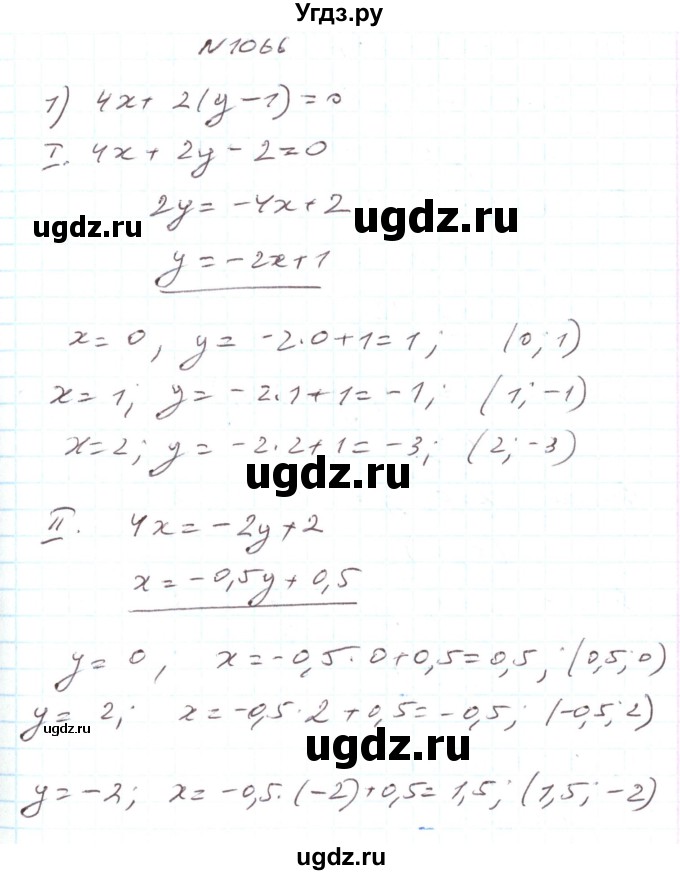 Угдз.ру
N 1066
1) 4x + 2(y - 1) = 0
I. 4x + 2y - 2 = 0
2y = -4x + 2
ugdz.ru ugdz.ru
y = -2x + 1
x = 0, y = -2·0+1 = 1; (0; 1)
x = 1; y = -2·1+1 = -1; (1; -1)
x = 2; y = -2·2+1 = -3; (2; -3)
ugdz.ru
II. 4x = -2y + 2
x = -0,5y + 0,5
y = 0, x = -0,5·0+0,5 = 0,5; (0,5; 0)
y = 2; x = -0,5·2+0,5 = -0,5; (-0,5; 2)
ugdz.ru ugdz.ru
y = -2; x = -0,5·(-2)+0,5 = 1,5; (1,5; -2)
ugdz.ru